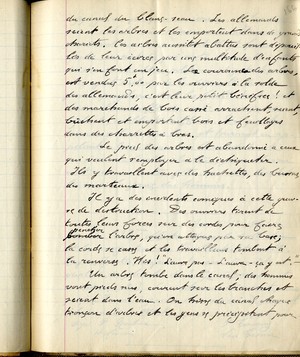 du canal du Blanc-seau. Les allemands
scient les arbres et les emportent dans de grands
chariots. Les arbres aussitôt abattus sont dépouil-
lés de leur écorce par une multitude d'enfants
qui s'en font un feu. Les des arbres
est vendu 5,00 par les ouvriers à la solde
des allemands, c'est leur petit bénéfice! et
des marchands de bois arrachent, scient,
bûchent et emportent bois et feuillages
dans des charrettes à bras.
Le pied des arbres est abandonné à ceux
qui veulent s'employer à le déchiqueter.
Ils y travaillent avec des hachettes, des burins,
des marteaux.
Il y a des accidents consignés à cette
de destruction. Des ouvriers tirent de
toutes leurs forces sur des cordes pour faire
tomber l'arbre, qu'une attaque par
la corde se casse et les travailleurs tombent à
la renverse.
Un arbre tombe dans le canal, des hommes
vont pieds nus, courent sur les branches et
scient dans l'eau. On hisse du canal chaque
tronçon d'arbres et les gens se précipitent pour